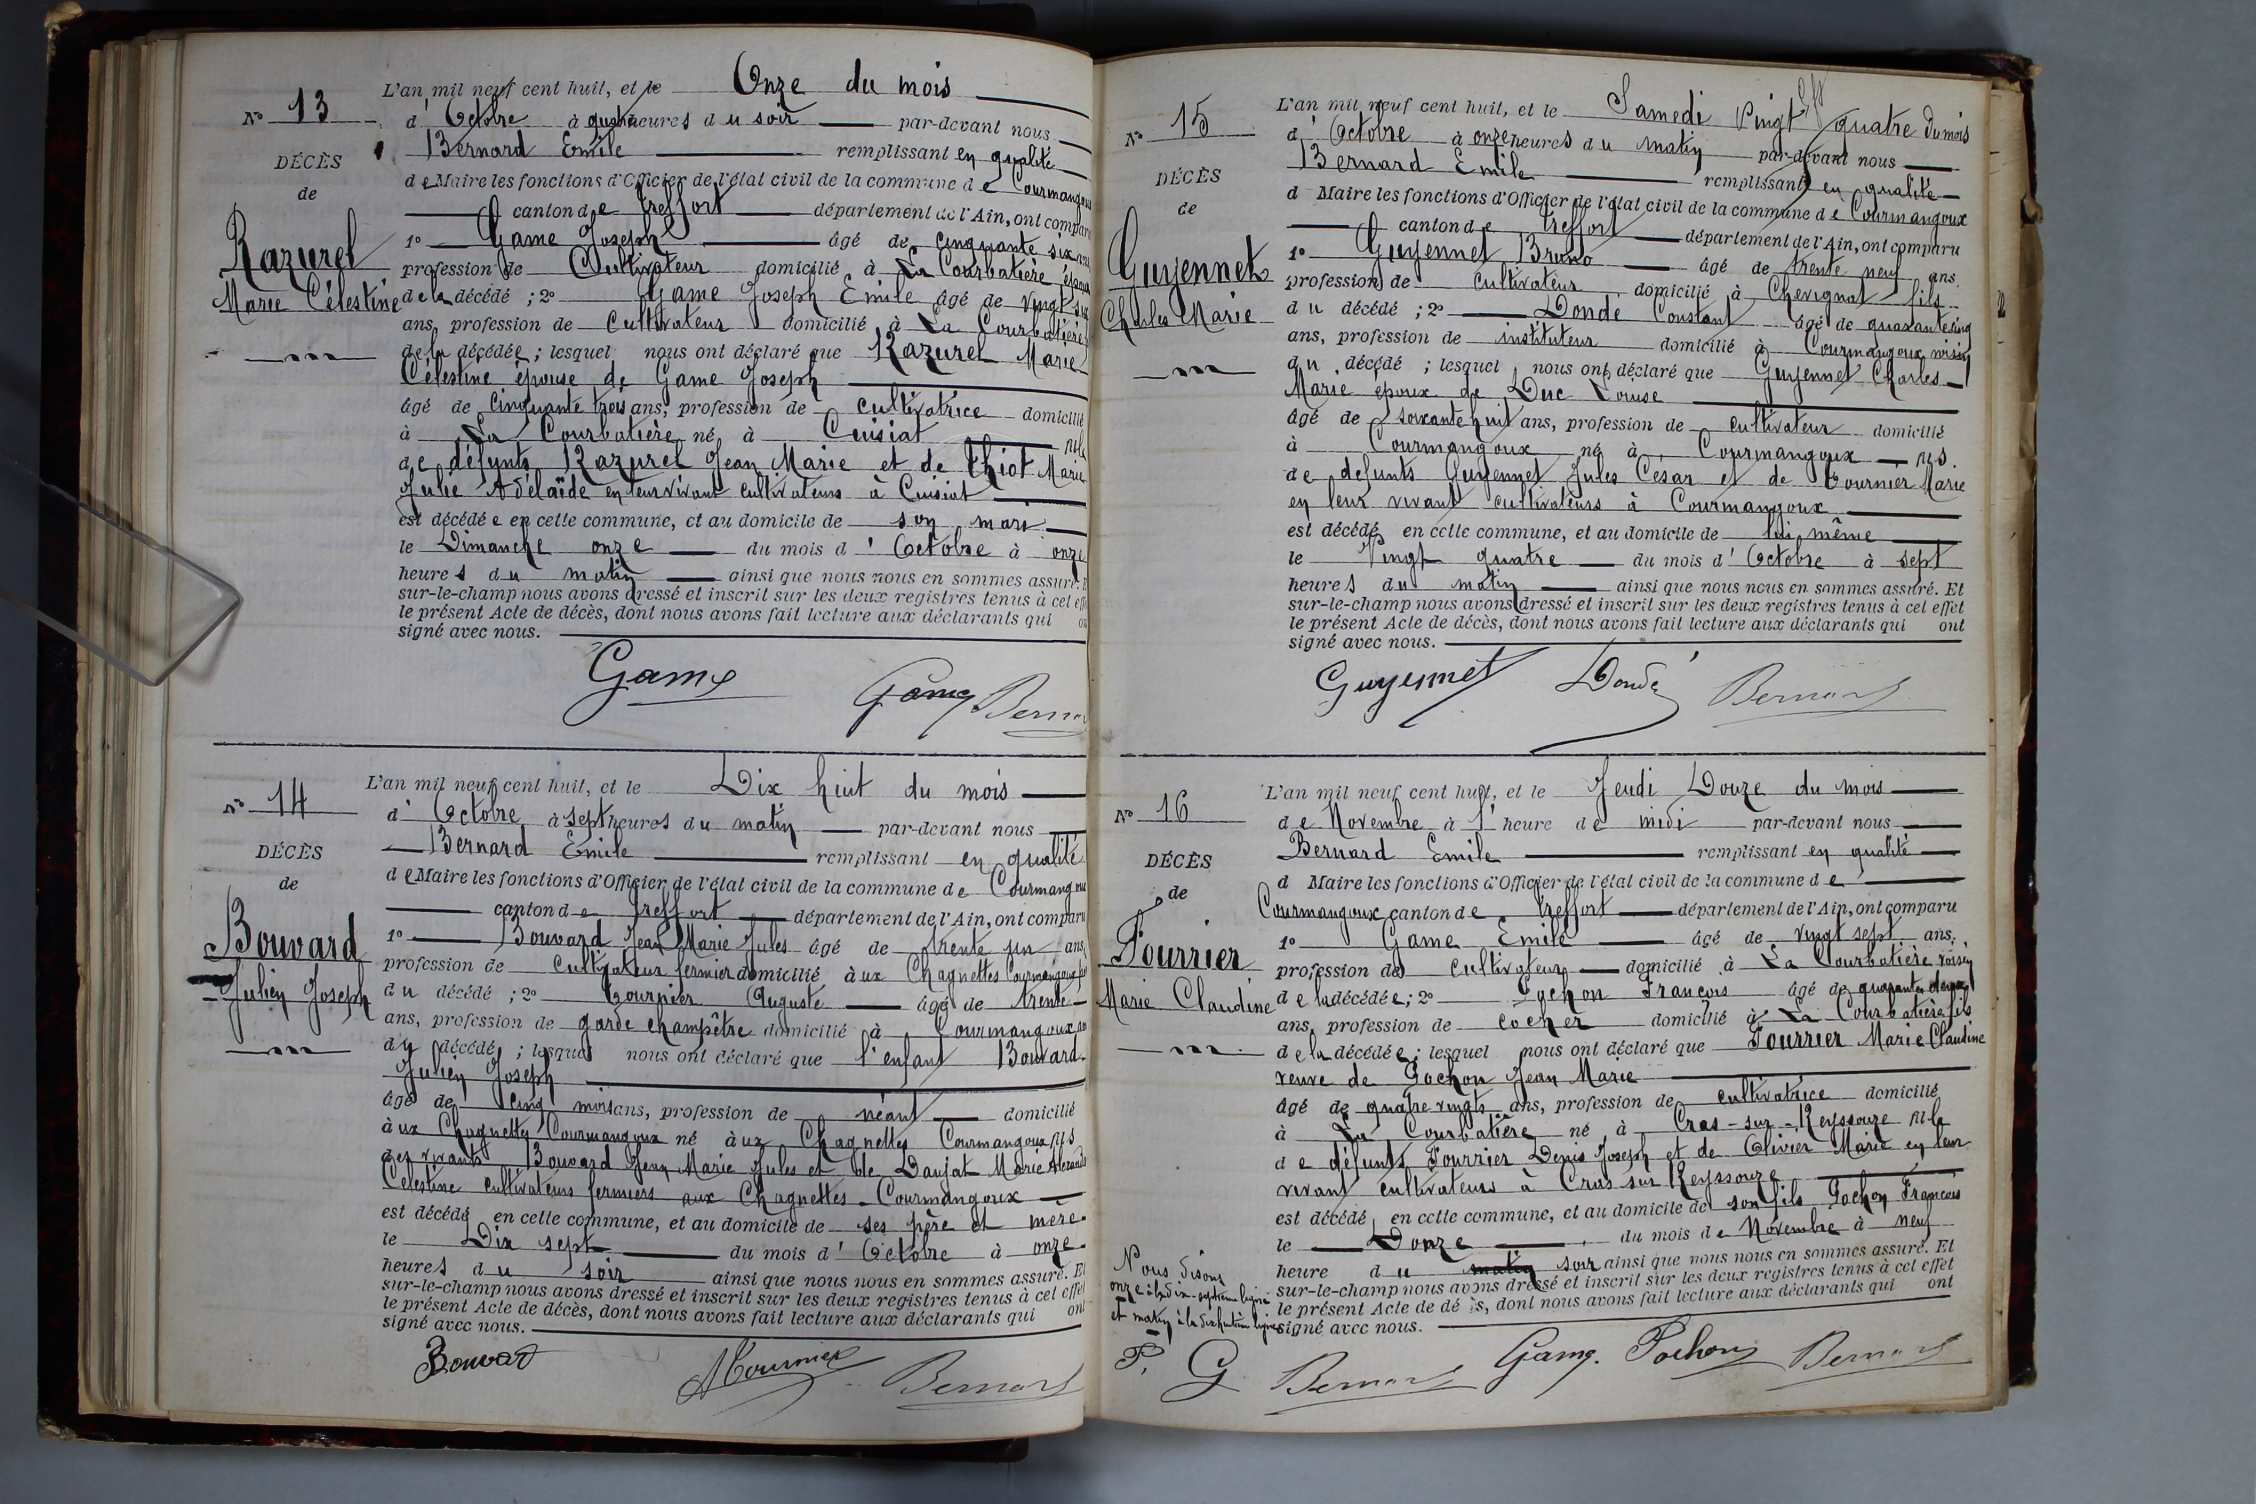 N° 13
DÉCÈS
de
Razurel
Marie Célestine
L'an mil neuf cent huit, et le Onze du mois
d'Octobre à quatre heures du soir par-devant nous
Bernard Emile remplissant en qualité
de Maire les fonctions d'Officier de l'état civil de la commune de Courmangoux
canton de Treffort département de l'Ain, ont comparu
1° Game Joseph âgé de cinquante six ans
profession de Cultivateur domicilié à La Courbatière époux
de la décédé ; 2° Game Joseph Emile âgé de vingt sept
ans, profession de Cultivateur domicilié à La Courbatière
de la décédée ; lesquel nous ont déclaré que Razurel Marie
Célestine épouse de Game Joseph
âgé de cinquante trois ans, profession de cultivatrice domicilié
à La Courbatière né à Cuisiat fille
de défunts Razurel Jean Marie et de Thiot Marie
Julie Adélaïde en leur vivant cultivateurs à Cuisiat
est décédée en cette commune, et au domicile de son mari
le Dimanche onze du mois d'Octobre à onze
heures du matin ainsi que nous nous en sommes assuré. Et
sur-le-champ nous avons dressé et inscrit sur les deux registres tenus à cet effet
le présent Acte de décès, dont nous avons fait lecture aux déclarants qui ont
signé avec nous.
Game Game Bernard
N° 14
DÉCÈS
de
Bouvard
Julien Joseph
L'an mil neuf cent huit, et le Dix huit du mois
d'Octobre à sept heures du matin par-devant nous
Bernard Emile remplissant en qualité
de Maire les fonctions d'Officier de l'état civil de la commune de Courmangoux
canton de Treffort département de l'Ain, ont comparu
1° Bouvard Jean Marie Jules âgé de trente un ans,
profession de Cultivateur fermier domicilié aux Chagnettes Courmangoux
du décédé ; 2° Tournier Auguste âgé de trente
ans, profession de garde champêtre domicilié à Courmangoux
du décédé ; lesquel nous ont déclaré que l'enfant Bouvard
Julien Joseph
âgé de cinq mois ans, profession de néant domicilié
aux Chagnettes Courmangoux né aux Chagnettes Courmangoux fils
des vivants Bouvard Jean Marie Jules et de Daujat Marie
Célestine cultivateurs fermiers aux Chagnettes - Courmangoux
est décédé en cette commune, et au domicile de ses père et mère
le Dix sept du mois d'Octobre à onze
heures du soir ainsi que nous nous en sommes assuré. Et
sur-le-champ nous avons dressé et inscrit sur les deux registres tenus à cet effet
le présent Acte de décès, dont nous avons fait lecture aux déclarants qui ont
signé avec nous.
Bouvard ATournier Bernard
N° 15
DÉCÈS
de
Guyennet
Charles Marie
L'an mil neuf cent huit, et le Samedi Vingt quatre du mois
d'Octobre à onze heures du matin par-devant nous
Bernard Emile remplissant en qualité
d Maire les fonctions d'Officier de l'état civil de la commune de Courmangoux
canton de Treffort département de l'Ain, ont comparu
1° Guyennet Bruno âgé de trente neuf ans
profession de cultivateur domicilié à Chevignat fils
du décédé ; 2° Dondé Constant âgé de quarante cinq
ans, profession de instituteur domicilié à Courmangoux voisin
du décédé ; lesquel nous ont déclaré que Guyennet Charles
Marie époux de Duc Louise
âgé de soixante huit ans, profession de cultivateur domicilié
à Courmangoux né à Courmangoux fils
de défunts Guyennet Jules César et de Tournier Marie
en leur vivant cultivateurs à Courmangoux
est décédé en cette commune, et au domicile de lui même
le Vingt quatre du mois d'Octobre à sept
heures du matin ainsi que nous nous en sommes assuré. Et
sur-le-champ nous avons dressé et inscrit sur les deux registres tenus à cet effet
le présent Acte de décès, dont nous avons fait lecture aux déclarants qui ont
signé avec nous.
Guyennet Dondé Bernard
N° 16
DÉCÈS
de
Fourrier
Marie Claudine
L'an mil neuf cent huit, et le Jeudi Douze du mois
de Novembre à 1 heure de midi par-devant nous
Bernard Emile remplissant en qualité
d Maire les fonctions d'Officier de l'état civil de la commune de
Courmangoux canton de Treffort département de l'Ain, ont comparu
1° Game Emile âgé de vingt sept ans,
profession de cultivateur domicilié à La Courbatière voisin
de la décédée ; 2° Pochon François âgé de quarante deux
ans, profession de cocher domicilié à La Courbatière fils
de la décédée ; lesquel nous ont déclaré que Fourrier Marie Claudine
veuve de Pochon Jean Marie
âgé de quatre vingts ans, profession de cultivatrice domicilié
à La Courbatière né à Cras-sur-Reyssouze fille
de défunts Fourrier Denis Joseph et de Olivier Marie en leur
vivant cultivateurs à Cras sur Reyssouze
est décédé en cette commune, et au domicile de son fils Pochon François
le Douze du mois de Novembre à neuf
heure du matin soir ainsi que nous nous en sommes assuré. Et
sur-le-champ nous avons dressé et inscrit sur les deux registres tenus à cet effet
le présent Acte de dé ès, dont nous avons fait lecture aux déclarants qui ont
signé avec nous.
Nous disons
onze à la dix-septième ligne
et matin à la dixhuitième ligne
P. G Bernard Game. Pochon Bernard